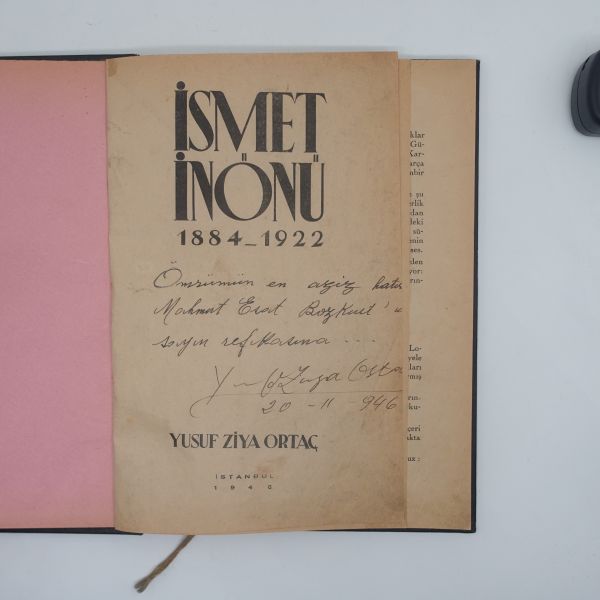 İSMET
İNÖNÜ
1884-1922
Ömrümün en aziz hatır
Mahmut Esat Bozkurt'u
sayın refikasına ...
Yusuf Ziya Orta
20-11-946
YUSUF ZİYA ORTAÇ
İSTANBUL
1946
klar
Gü-
Kar-
arça
nbir
şu
erlik
dan
deki
sü-
enin
ses.
eden
yor:
rın-
Lo-
yele
ları
mış
rın.
ku-
çeri
akta
uz :